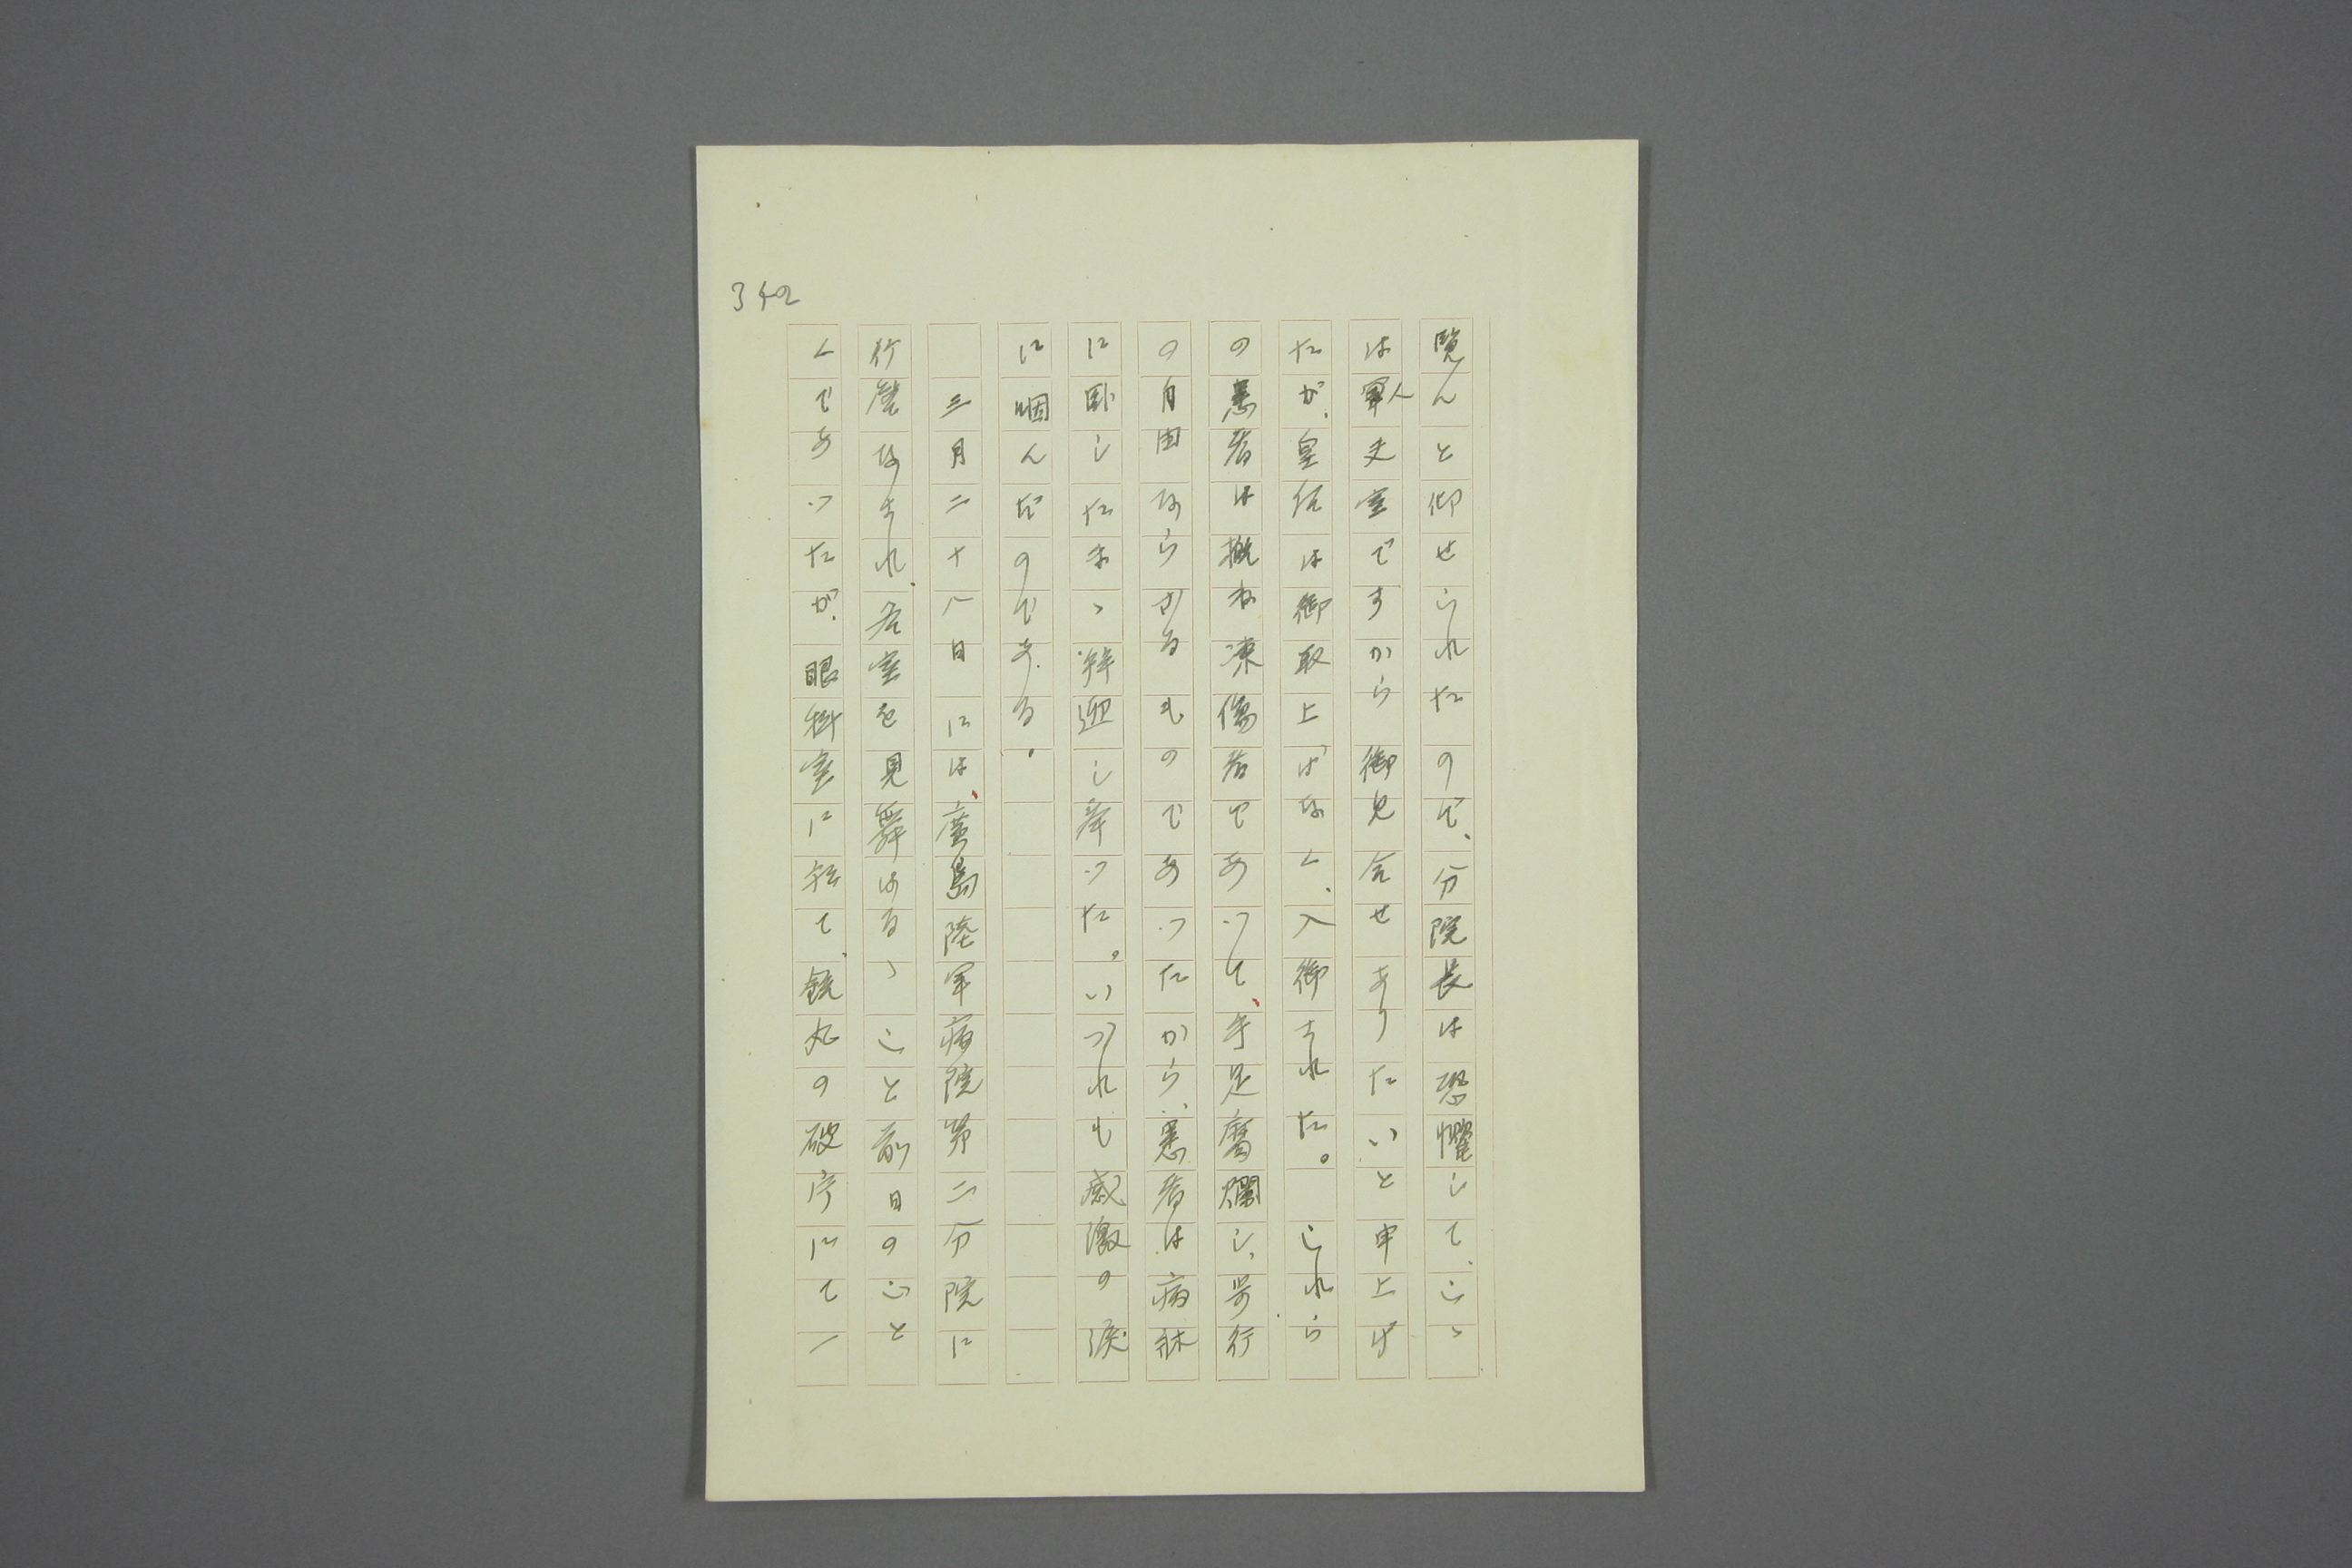 342
覧んと仰せられたので、分院長は恐懼して、こゝ
は軍人夫室ですから御見合せありたいと申上げ
たが、皇后は御取上げなく、入御された。これら
の患者は概ね凍傷者であつて、手足腐爛し、歩行
の自由ならざるものであつたから、患者は病牀
に臥したまゝ拝迎し奉つた。いづれも感激の涙
に咽んだのである。
三月二十八日には、廣島陸軍病院第二分院に
行啓なされ、各室を見舞はるゝこと前日のごと
くであつたが、眼科室に於て、銃丸の破片にて一